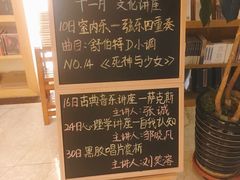 十一月 文化讲座
10日室内乐—弦乐四重奏
曲目:舒伯特D小调
NO.14《死神与少女》
16日古典音乐讲座—萨克斯
主讲人:张诚
24日心理学讲座—自我认知
主讲人:邹晓凡
30日黑胶唱片赏析
主讲人:刘笑溶